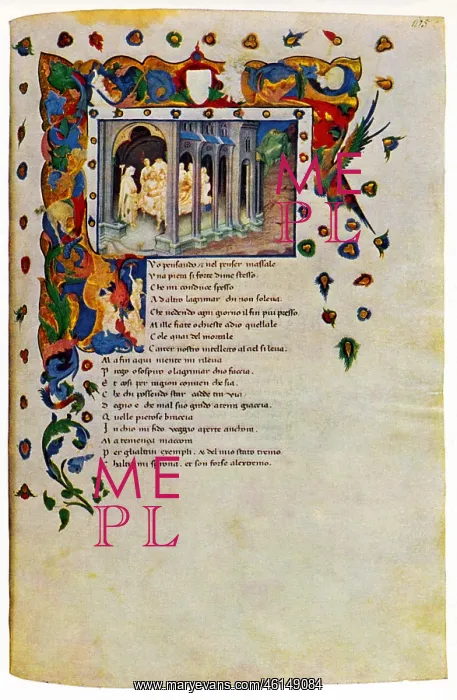 105
ME
PL
Yo pensando & nel penser massale
Vna pieta si forte dime stesso.
Che mi conduce spesso
Ad altro lagrimar chi non soleua.
Che uedendo ogni giorno il fin piu presso
Mille fiate o chieste adio quellale
Cole quai del mortale
Carcer nostro intellecto al ciel si leua.
Ma fin aqui niente mi rileua
Prego o sospiro o lagrimar chio faccia.
E cosi per ragion conuien che sia.
Che chi possendo star cadde tra uia
Degno e che mal suo grado aterra giaccia.
Quelle pietose braccia
In chio mi fido ueggio aperte anchora.
Ma temenza maccora
Per glialtrui exempli. & del mio stato tremo
altri mi sprona. et son forse alextremo.
ME
PL
www.maryevans.com/46149084